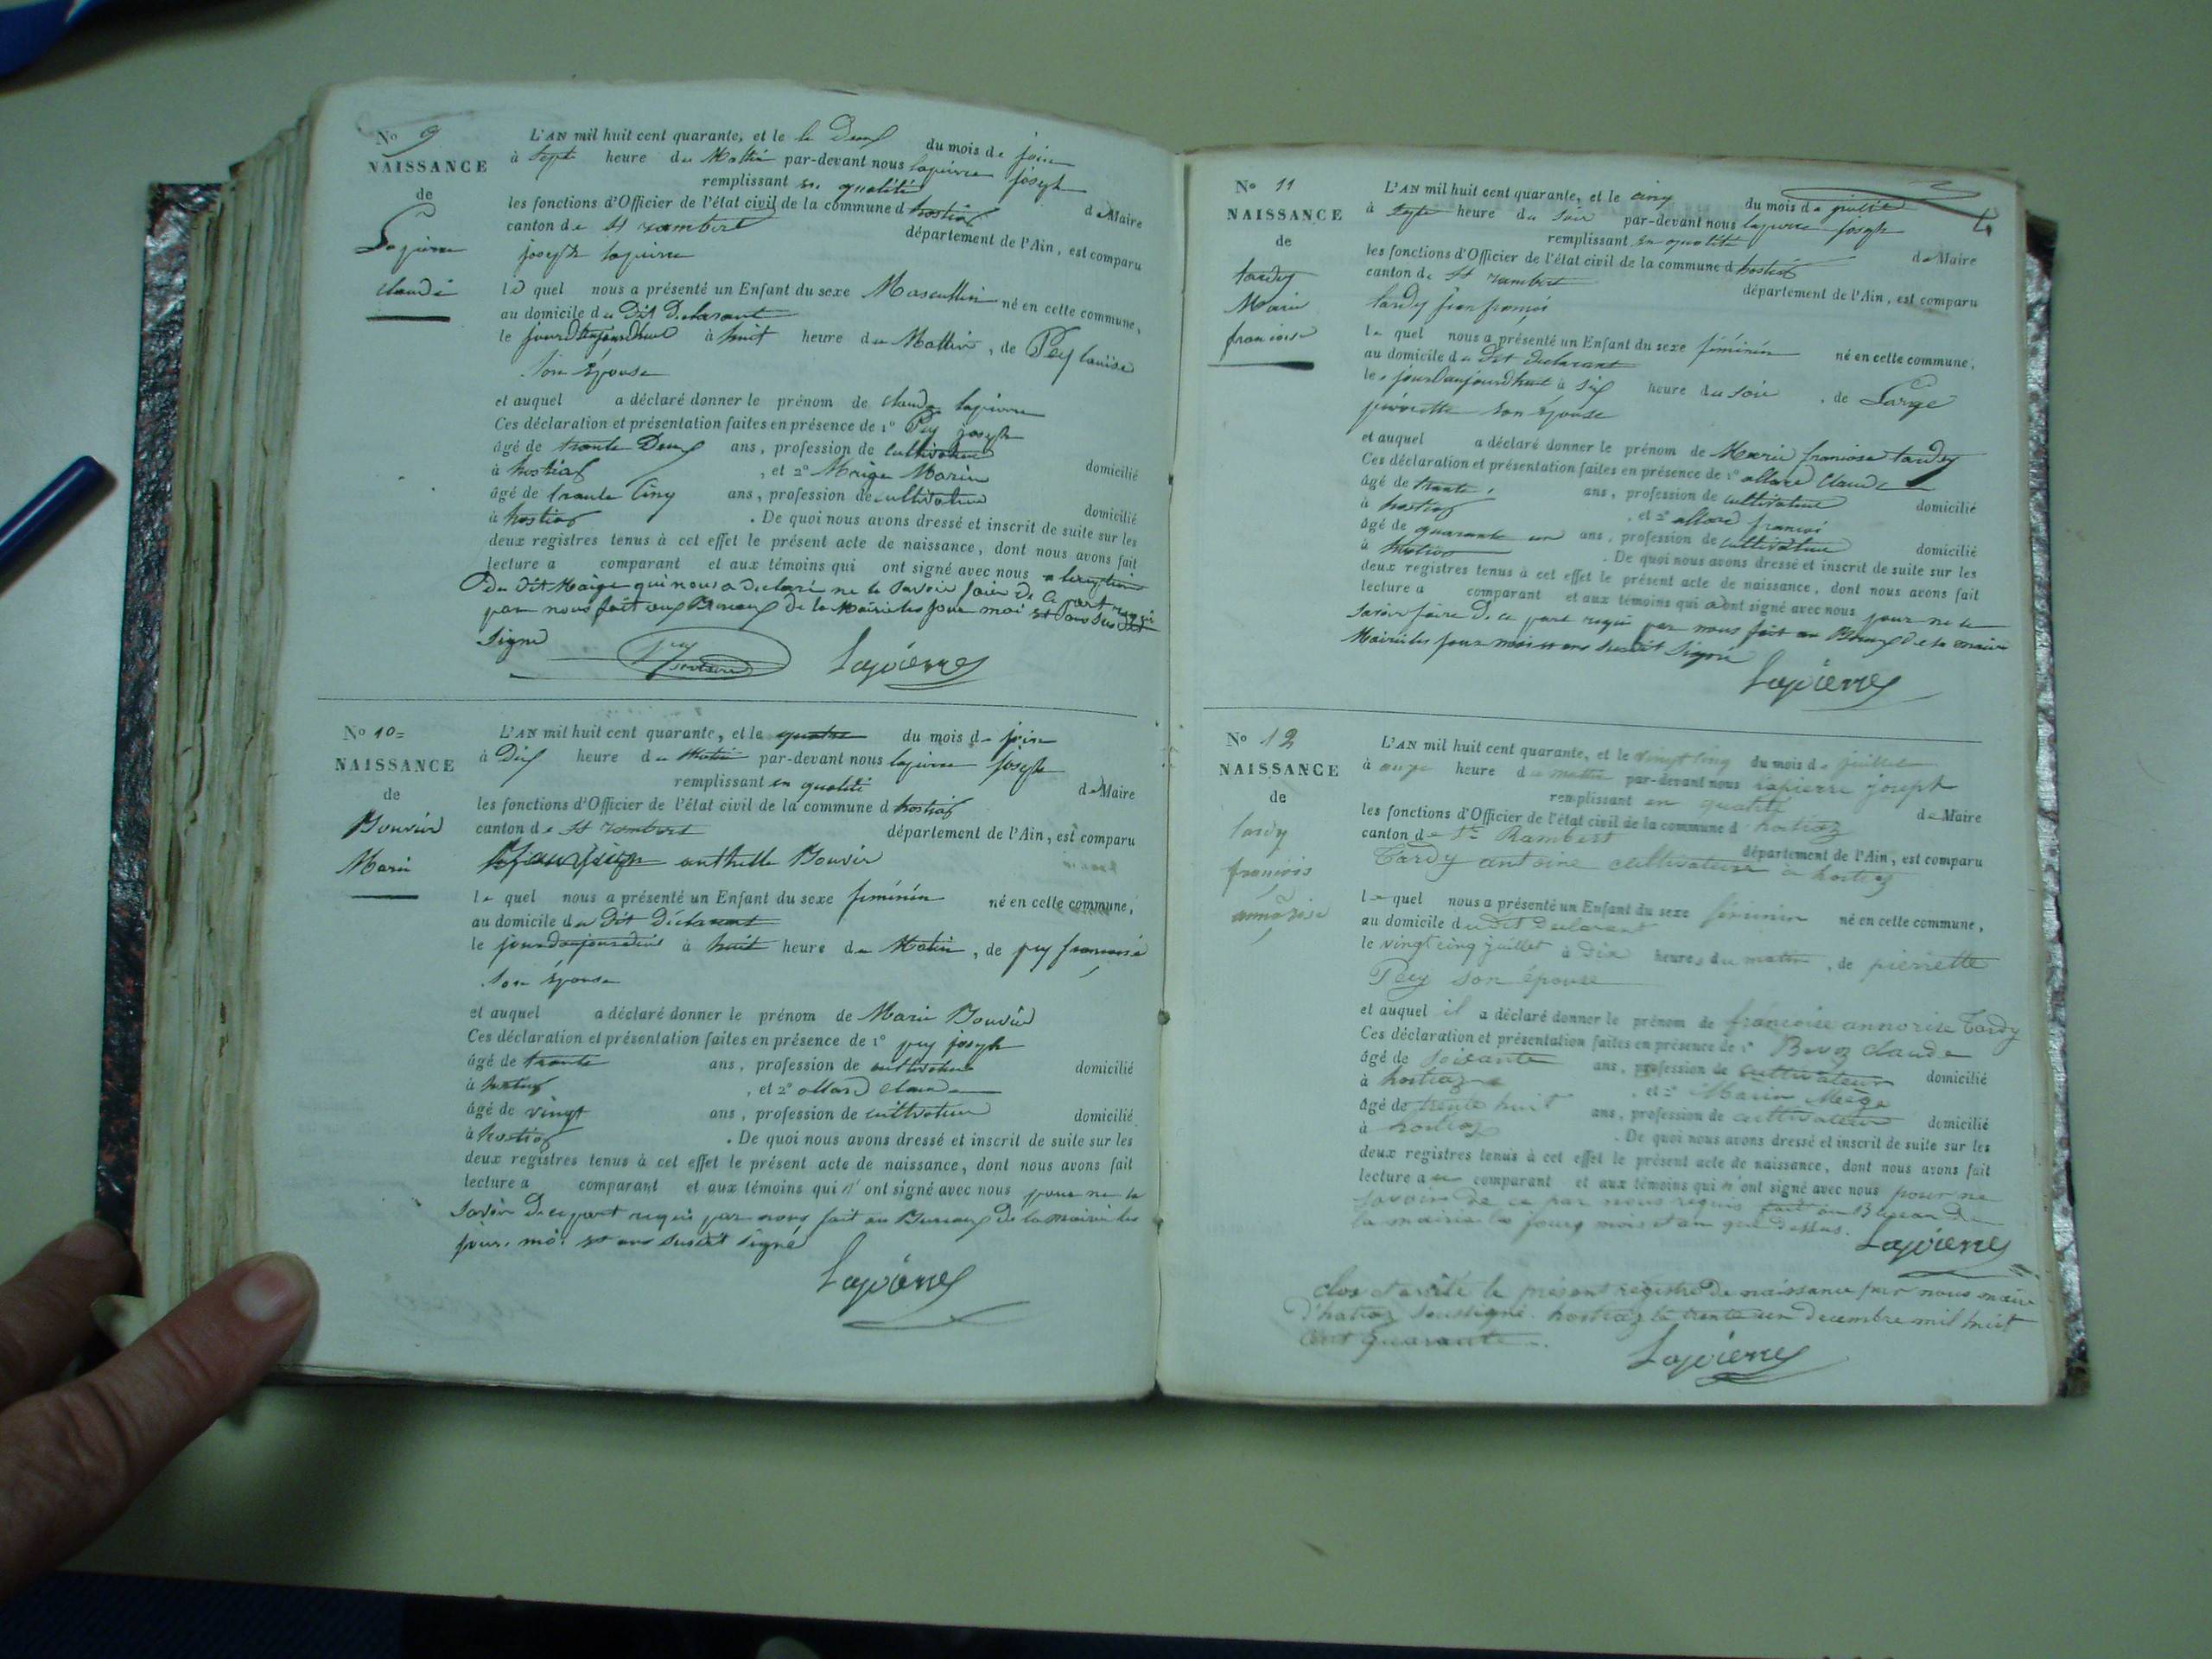 No 9
NAISSANCE
de
Lapierre
claude
L'AN mil huit cent quarante, et le le Deux du mois de join
à sept heure du Mattin par-devant nous lapierre joseph
remplissant en qualité de Maire
les fonctions d'Officier de l'état civil de la commune d hostiaz
canton de St rambert département de l'Ain, est comparu
joseph lapierre
le quel nous a présenté un Enfant du sexe Masculin né en cette commune,
au domicile du Dit Declarant
le jourd'aujourd'hui à huit heure du Mattin, de Pey louise
son épouse
et auquel a déclaré donner le prénom de claude lapierre
Ces déclaration et présentation faites en présence de 1° Pey joseph
âgé de trante Deux ans, profession de cultivateur domicilié
à hostiaz, et 2° Marin
âgé de trante Cinq ans, profession de cultivateur domicilié
à hostiaz. De quoi nous avons dressé et inscrit de suite sur les
deux registres tenus à cet effet le présent acte de naissance, dont nous avons fait
lecture a comparant et aux témoins qui ont signé avec nous
du Dit qui nous a declaré ne le savoir faire De Ce part requi
par nous fait aux Bureaux de la Mairie les jour moi et ans susdit
signé
Lapierre
No 10=
NAISSANCE
de
Bouvier
Marie
L'AN mil huit cent quarante, et le quatre du mois de join
à Dix heure du Matin par-devant nous lapierre joseph
remplissant en qualité de Maire
les fonctions d'Officier de l'état civil de la commune d hostiaz
canton de St rambert département de l'Ain, est comparu
anthelle Bouvier
le quel nous a présenté un Enfant du sexe féminin né en cette commune,
au domicile du Dit Déclarant
le jourdaujourdhui à huit heure du Matin, de pey francoise
son épouse
et auquel a déclaré donner le prénom de Marie Bouvier
Ces déclaration et présentation faites en présence de 1° pey joseph
âgé de trante ans, profession de cultivateur domicilié
à hostiaz, et 2° allard claude
âgé de vingt ans, profession de cultivateur domicilié
à hostiaz. De quoi nous avons dressé et inscrit de suite sur les
deux registres tenus à cet effet le présent acte de naissance, dont nous avons fait
lecture a comparant et aux témoins qui n'ont signé avec nous pour ne le
savoir De ce part requis par nous fait au Bureaux De la mairie les
jour. moi et ans susdit signé
Lapierre
No 11
NAISSANCE
de
tardy
Marie
francoise
L'AN mil huit cent quarante, et le cinq du mois de juillet
à sept heure du soir par-devant nous lapierre joseph
remplissant en qualité de Maire
les fonctions d'Officier de l'état civil de la commune d hostiaz
canton de St rambert département de l'Ain, est comparu
tardy jean francoi
le quel nous a présenté un Enfant du sexe féminin né en cette commune,
au domicile du Dit Declarant
le jourdaujourdhui à six heure du soir, de Large
pierrette son épouse
et auquel a déclaré donner le prénom de Marie francoise tardy
Ces déclaration et présentation faites en présence de 1° allard Claude
âgé de trante ans, profession de cultivateur domicilié
à hostiaz, et 2° allard francoi
âgé de quarante un ans, profession de cultivateur domicilié
à hostiaz. De quoi nous avons dressé et inscrit de suite sur les
deux registres tenus à cet effet le présent acte de naissance, dont nous avons fait
lecture a comparant et aux témoins qui ont signé avec nous pour ne le
savoir faire De ce part requi par nous fait au Bureaux de la mairie
les jour moi et ans susdit signé
Lapierre
No 12
NAISSANCE
de
tardy
francois
annorise
L'AN mil huit cent quarante, et le vingt cinq du mois de juillet
à onze heure du matin par-devant nous Lapierre joseph
remplissant en qualité de Maire
les fonctions d'Officier de l'état civil de la commune d hostiaz
canton de St Rambert département de l'Ain, est comparu
Tardy antoine cultivateur à hostiaz
le quel nous a présenté un Enfant du sexe féminin né en cette commune,
au domicile du dit Declarant
le vingt cinq juillet à Dix heures du matin, de pierrette
Pey son épouse
et auquel il a déclaré donner le prénom de francoise annorise Tardy
Ces déclaration et présentation faites en présence de 1° claude
âgé de soixante ans, profession de cultivateur domicilié
à hostiaz, et 2° Marin
âgé de trente huit ans, profession de cultivateur domicilié
à hostiaz. De quoi nous avons dressé et inscrit de suite sur les
deux registres tenus à cet effet le présent acte de naissance, dont nous avons fait
lecture au comparant et aux témoins qui n'ont signé avec nous pour ne
savoir de ce par nous requis fait au Bureau De
la mairie les jours mois et an que dessus.
Lapierre
clos et arrêté le présent registre De naissance par nous maire
d'hostiaz soussigné. hostiaz le trente un Decembre mil huit
cent quarante.
Lapierre